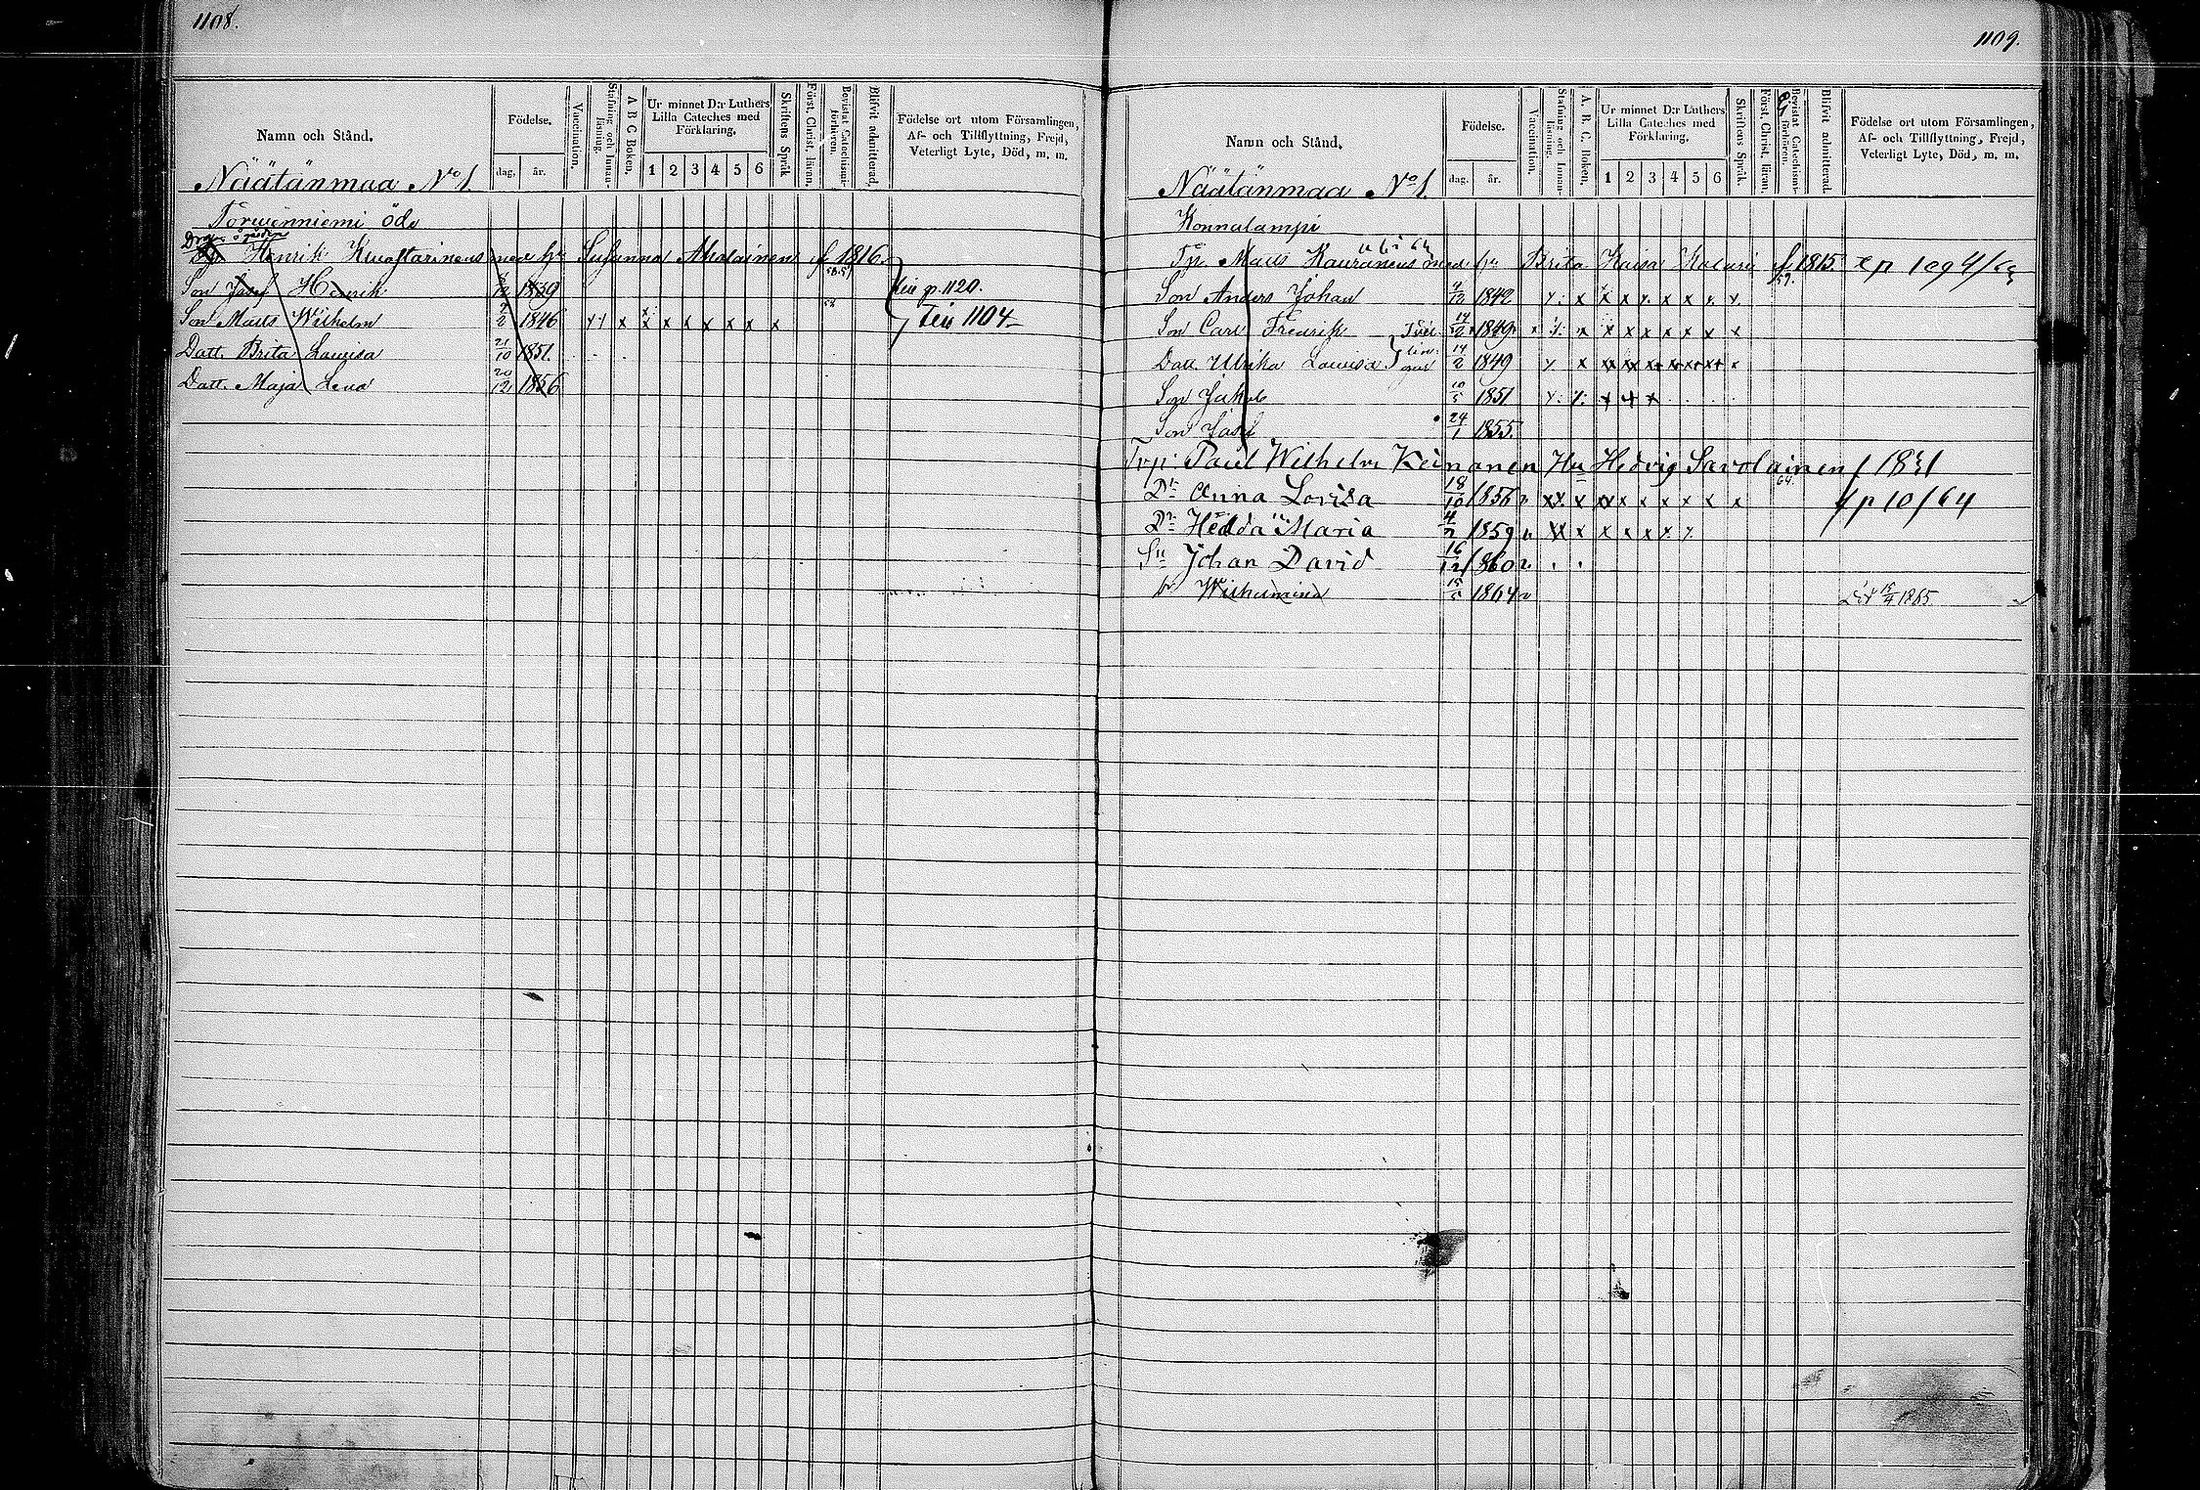 1108.
Namn och Stånd.
Födelse.
dag.
år.
Vaccination.
Stafning och Innanläsning.
A B C Boken.
Ur minnet D:r Luthers Lilla Cateches med Förklaring.
1 2 3 4 5 6
Skriftens Språk
Först. Christ. läran.
Bevistat Catechismiförhören.
Blifvit admitterad.
Födelse ort utom Församlingen, Af- och Tillflyttning, Frejd, Veterligt Lyte, Död, m. m.
Näätänmaa No 1.
Torwinniemi öde
Henrik med hu Susanna f 1816.
Son Henrik 1839 till p. 1120.
Son Matts Wilhelm 2/2 1846 x x x x x x x x 1104
Datt. Brita Lovisa 21/10 1851.
Datt. Maja Lena 20/12 1856
1109.
Namn och Stånd.
Födelse.
dag.
år.
Vaccination.
Stafning och Innanläsning.
A. B. C. Boken.
Ur minnet D:r Luthers Lilla Cateches med Förklaring.
1 2 3 4 5 6
Skriftens Språk.
Först. Christ. läran.
Bevistat Catechismiförhören.
Blifvit admitterad.
Födelse ort utom Församlingen, Af- och Tillflyttning, Frejd, Veterligt Lyte, Död, m. m.
Näätänmaa No 1.
Konnalampi
Tp. Matts Kauranens med hu Brita Kaisa f 1815.
Son Anders Johan 12 1842
Son Carl Fredrik 14/2 1849 x x x x x x x x
Datt. Ulrika Lovisa 14/2 1849
Son Jakob 10/5 1851
Son Josef 24/1 1855.
Torp. Paul Wilhelm Keinanen Hu Hedvig Savolainen f 1831
Dr Anna Lovisa 18/10 1856 fp 10/64
Dr Hedda Maria 4/2 1859
Sn Johan David 16/12 1860
Wilhelmina 15/5 1864 Död 1865